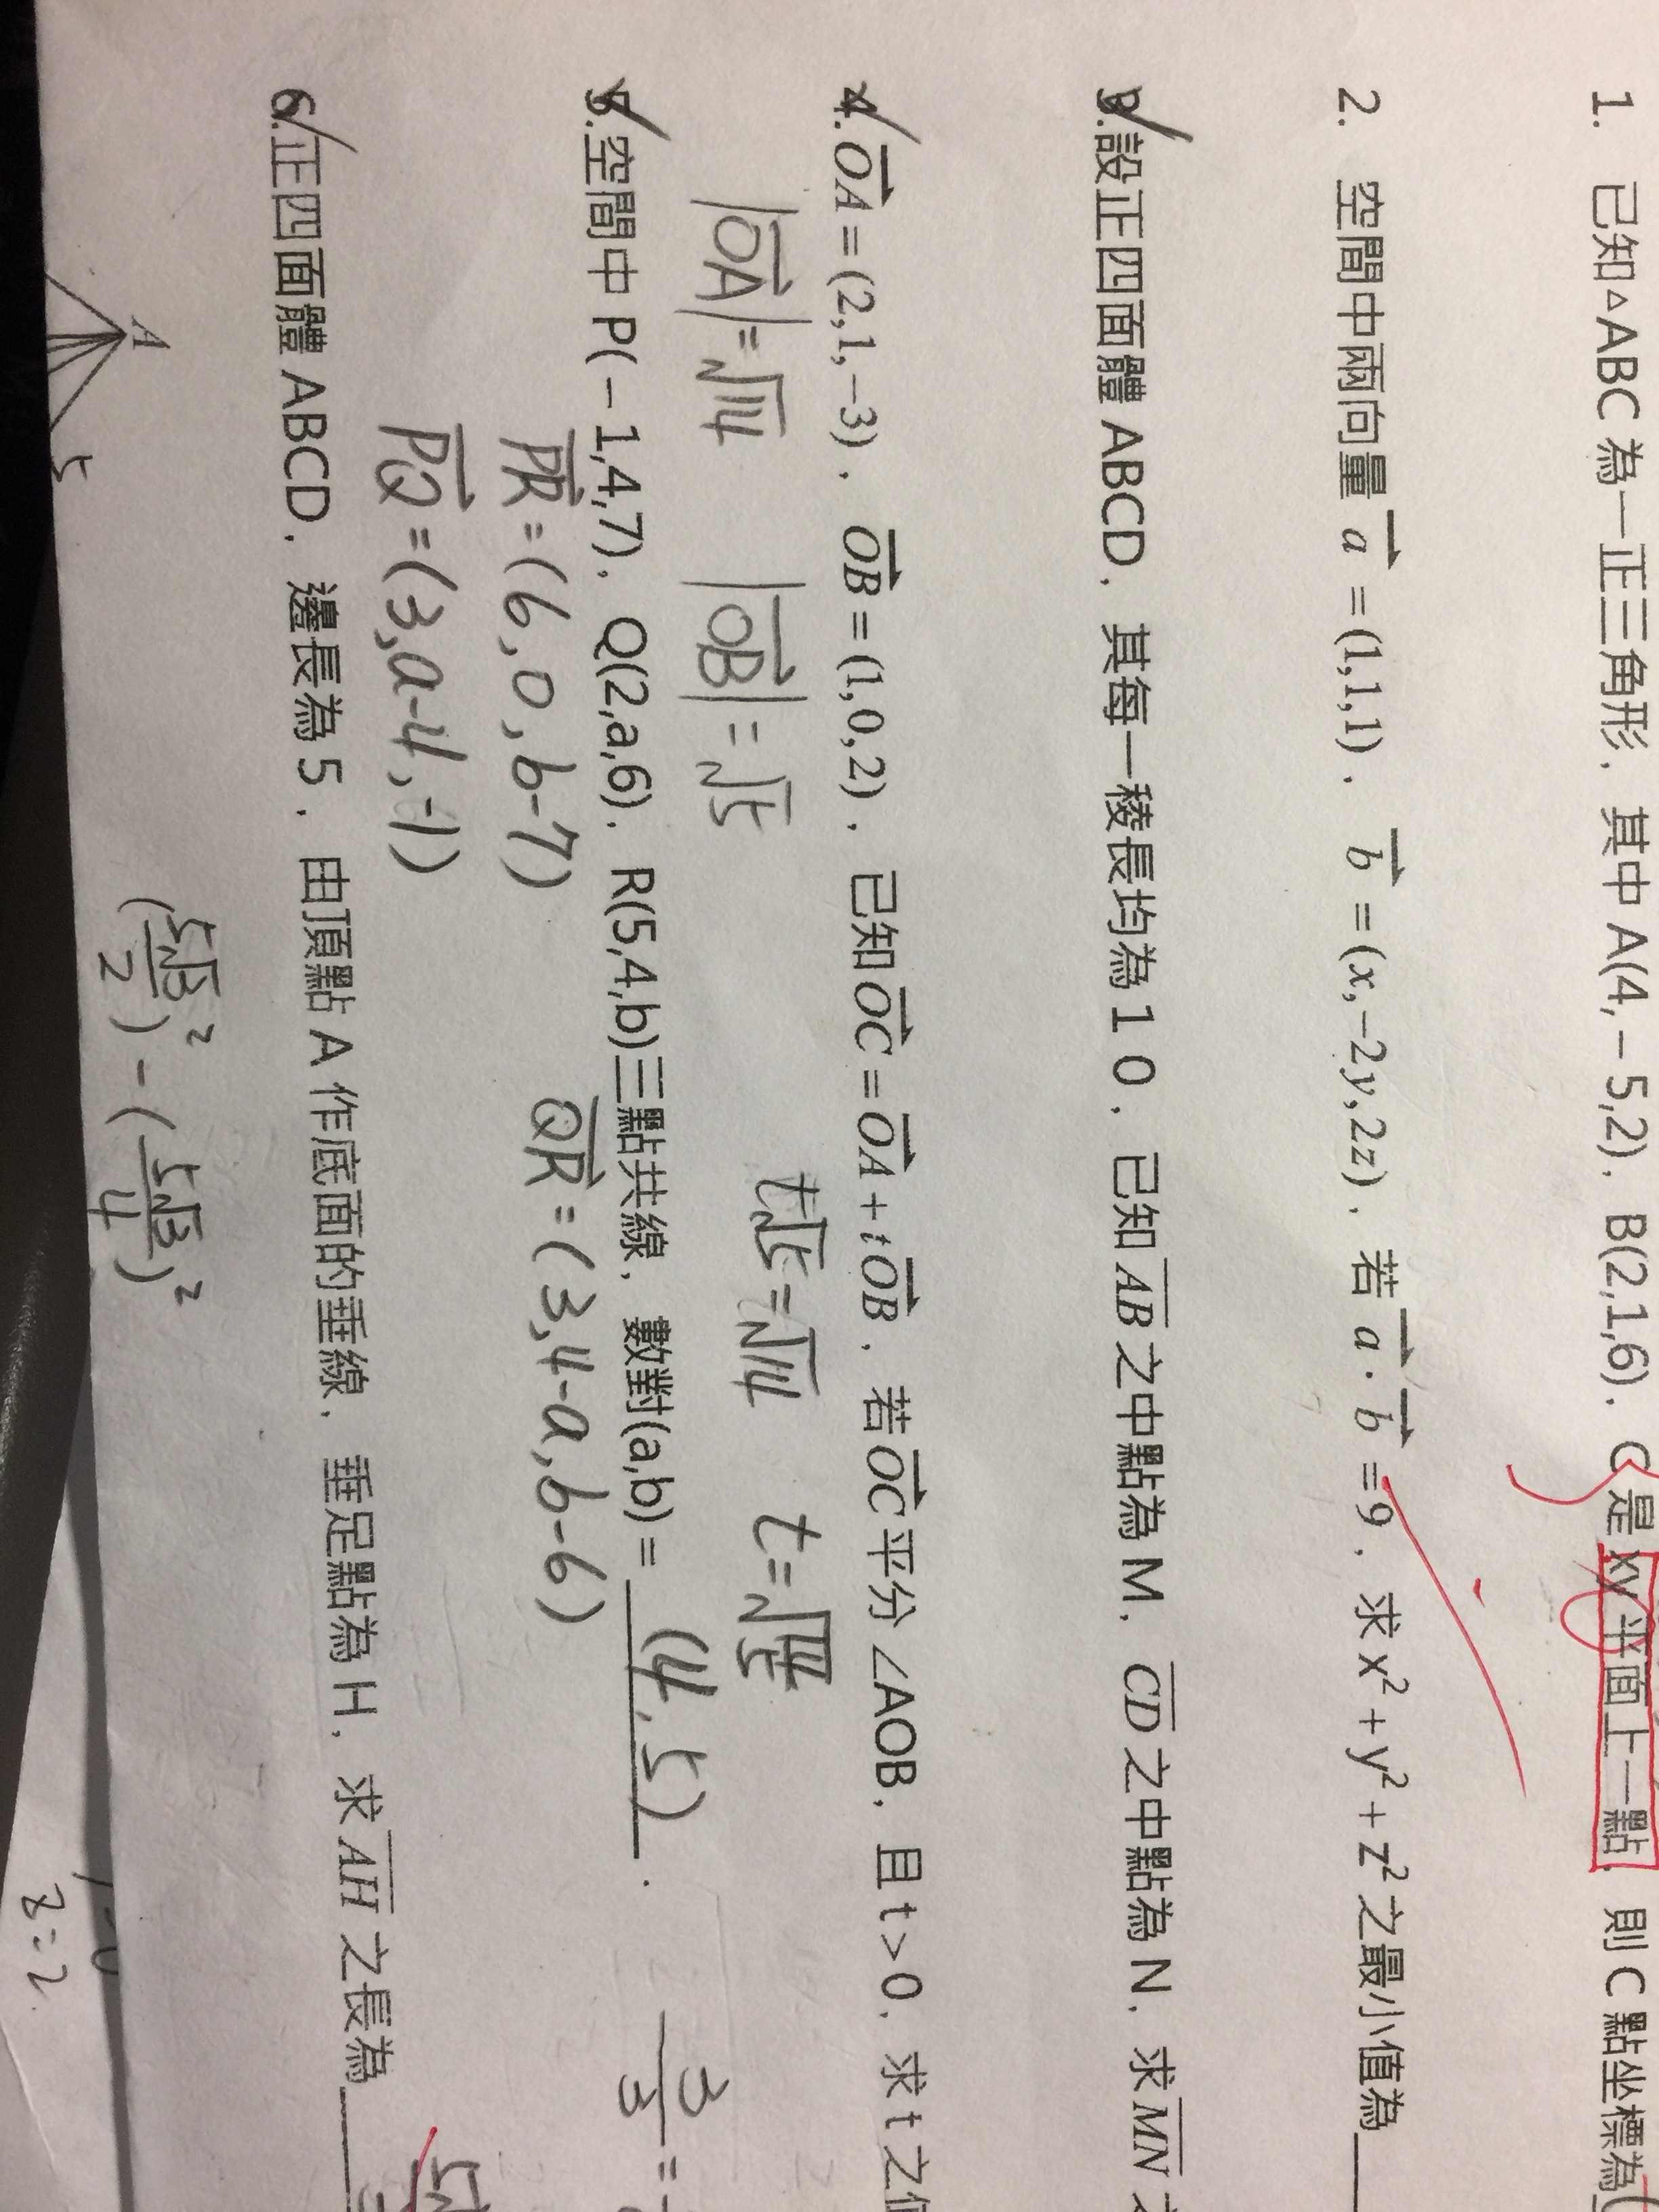 1. 已知△ABC 為一正三角形，其中 A(4,－5,2)，B(2,1,6)，C 是 xy 平面上一點，則 C 點坐標為
2. 空間中兩向量 a = (1,1,1)，b = (x,−2y,2z)，若 a · b = 9，求 x² + y² + z² 之最小值為
3. 設正四面體 ABCD，其每一稜長均為 1 0，已知 AB 之中點為 M，CD 之中點為 N，求 MN
4. OA = (2,1,−3)，OB = (1,0,2)，已知 OC = OA + tOB，若 OC 平分 ∠AOB，且 t > 0，求 t 之值
|OA| = √14 |OB| = √5 t√5 = √14 t = √14/5
5. 空間中 P(－1,4,7)，Q(2,a,6)，R(5,4,b)三點共線，數對(a,b) = (4, 5)．
PR = (6, 0, b-7) QR = (3, 4-a, b-6) 3/3 =
PQ = (3, a-4, -1)
6. 正四面體 ABCD，邊長為 5，由頂點 A 作底面的垂線，垂足點為 H，求 AH 之長為
A 5 (5√3/2)² - (5√3/4)²
z=2